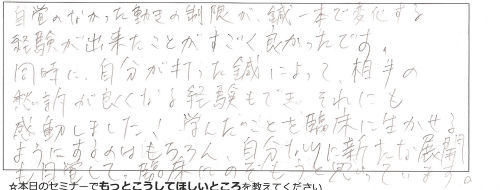 自覚のなかった動きの制限が、鍼一本で変化する
経験が出来たことがすごく良かったです。
同時に、自分が打った鍼によって、相手の
愁訴が良くなる経験もでき、それにも
感動しました！学んだことを臨床に生かせる
ようにするのはもちろん、自分なりに新たな展開
も目覚して、臨床にのぞもうと思っています。
☆本日のセミナーでもっとこうしてほしいところを教えてください